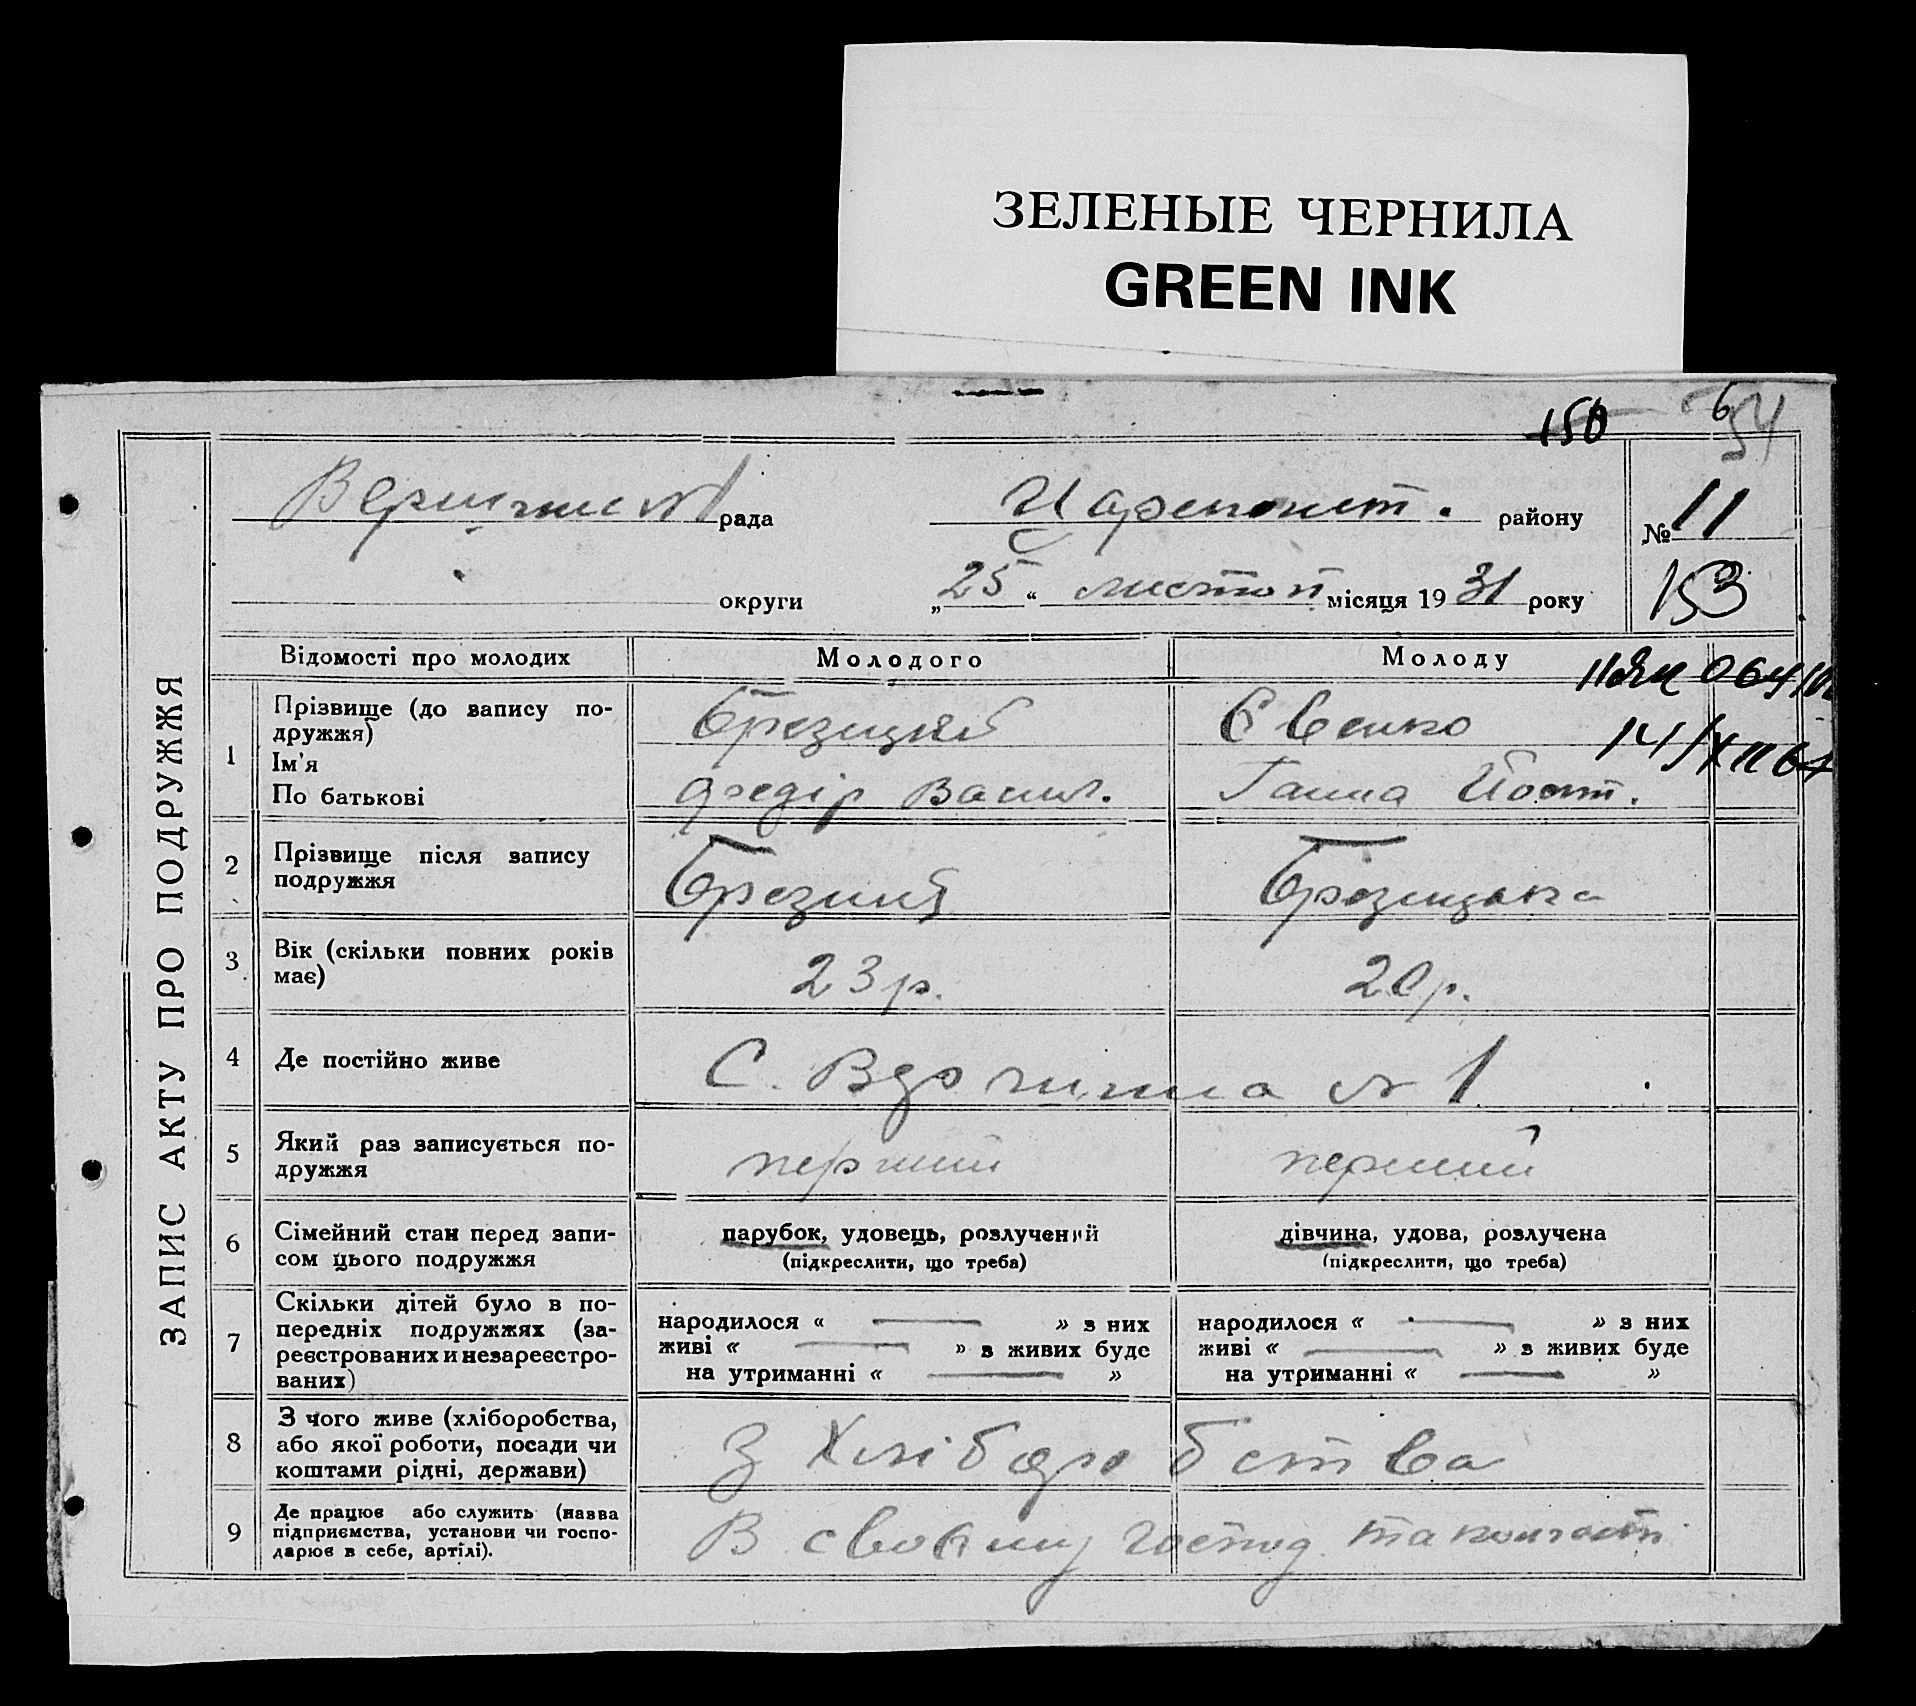 ЗЕЛЕНЫЕ ЧЕРНИЛА
GREEN INK
150 6 54
ЗАПИС АКТУ ПРО ПОДРУЖЖЯ
№1 рада района № 11
округи „25“ листоп місяця 1931 року 153
Відомості про молодих Молодого Молоду
14/XII 64
1 Прізвище (до запису по-
дружжя) Брезицкий Євенко
Ім'я
По батькові Федір Васил. Ганна Йост.
2 Прізвище після запису
подружжя Брезиций Брезицька
3 Вік (скільки повних років
має) 23 р. 20 р.
4 Де постійно живе С. №1
5 Який раз записується по-
дружжя перший перший
6 Сімейний стан перед запи-
сом цього подружжя
парубок, удовець, розлучений дівчина, удова, розлучена
(підкреслити, що треба) (підкреслити, що треба)
7 Скільки дітей було в по-
передніх подружжях (за-
реєстрованих и незареєстро-
ваних)
народилося « — » з них народилося « — » з них
живі « — » з живих буде живі « — » з живих буде
на утриманні « — » на утриманні « — »
8 З чого живе (хліборобства,
або якої роботи, посади чи
коштами рідні, держави)
З Хліборобства
9 Де працює або служить (назва
підприємства, установи чи госпо-
дарює в себе, артілі).
В своєму господ.